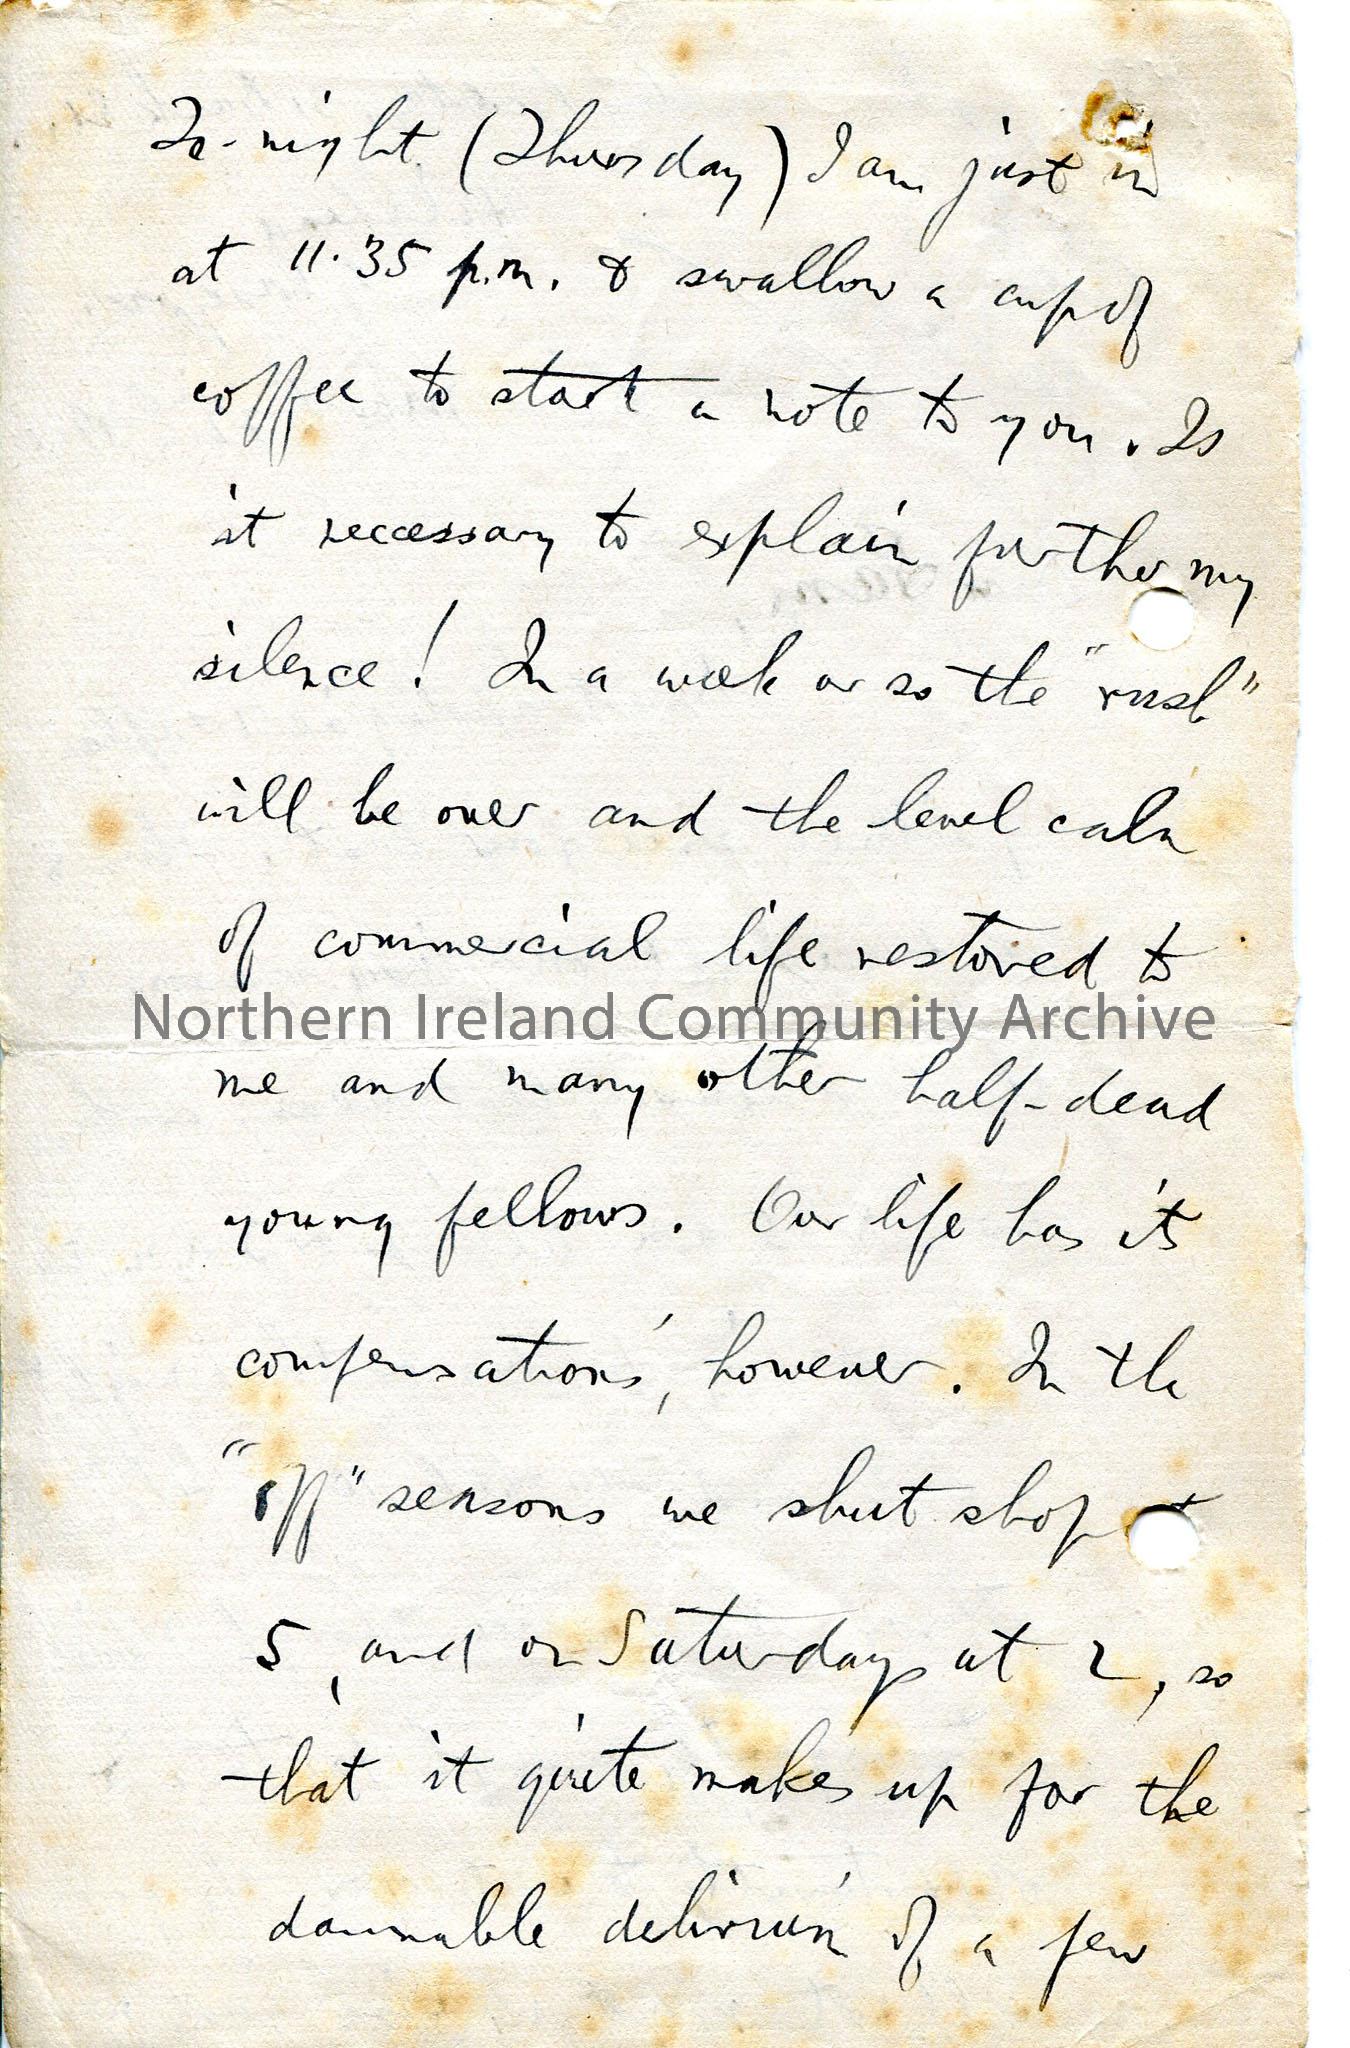 To-night (Thursday) I am just in
at 11.35 p.m. & swallow a cup of
coffee to start a note to you. Is
it necessary to explain further my
silence! In a week or so the "rush"
will be over and the level calm
of commercial life restored to
Northern Ireland Community Archive
me and many other half-dead
young fellows. Our life has its
compensations, however. In the
"off" seasons we shut shop
5, and on Saturdays at 2, so
that it quite makes up for the
damnable delirium of a few